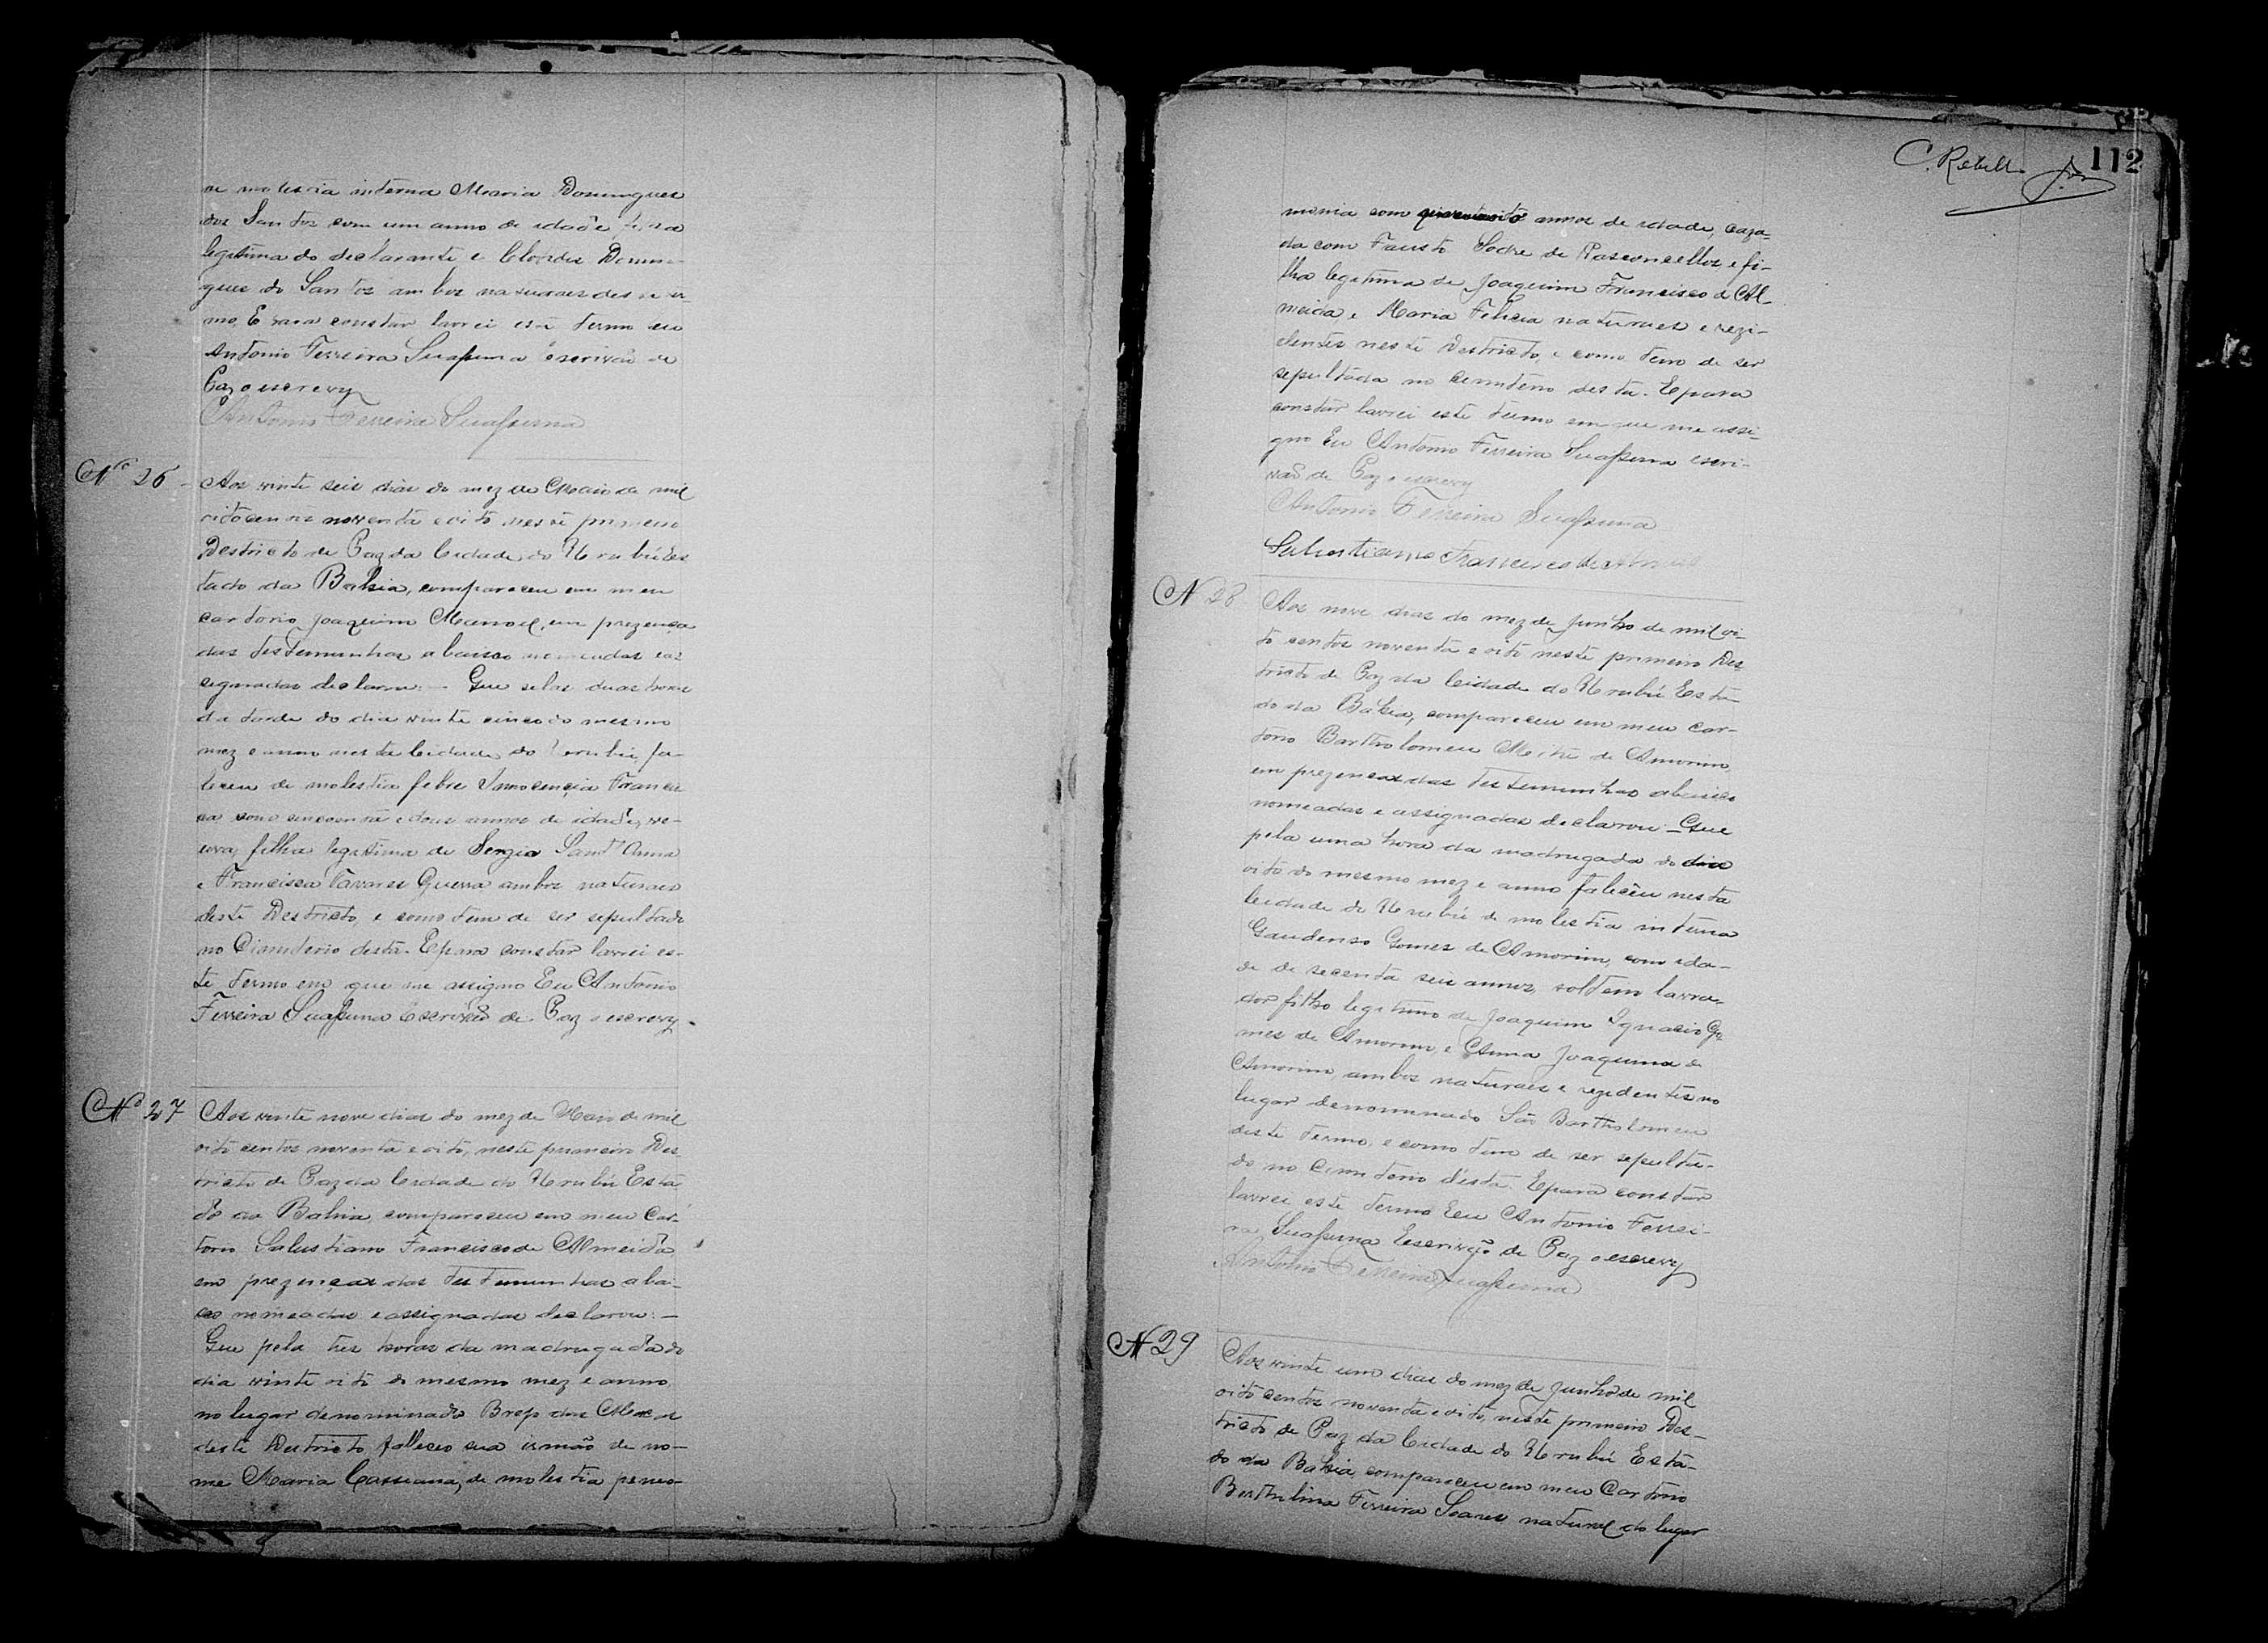 de molestia interna Maria Domingues
dos Santos com um anno de idade, filha
legitima do declarante e Clotides Domin-
gues do Santos ambos naturaes deste ter-
mo. E para constar lavrei este termo eu
Antonio Ferreira Suassuna escrivão de
Paz o escrevy
Antonio Ferreira Suassuna
Nº 26
Aos vinte seis dias do mez de Maio de mil
oitocentos noventa e oito neste primeiro
Destricto de Paz da Cidade do Urubú Es
tado da Bahia, compareceu em meu
cartorio Joaquim Manoel, em prezença
das testemunhas abaixo nomeadas e as
segnadas declarou: — Que pelas duas horas
da tarde do dia vinte cinco do mesmo
mez e anno nesta Cidade do Urubú, fa-
leceu de molestia febre Innocencia Francis
ca, com cincoenta e dous annos de idade, vi-
uva, filha legitima de Sergio Sant'Anna
e Francisca Tavares Guerra ambos naturaes
deste Destricto, e como tem de ser sepultado
no Cimiterio desta. E para constar lavrei es-
te termo em que me assigno Eu Antonio
Ferreira Suassuna Escrivão de Paz o escrevy.
Nº 27
Aos vinte nove dias do mez de Maio de mil
oito centos noventa e oito, neste primeiro Des
tricto de Paz da Cidade do Urubú Esta
do da Bahia, compareceu em meu Car-
torio Salustiano Francisco de Almeida
em prezença das testemunhas abai-
xo nomeadas e assignadas declarou: —
Que pela tres horas da madrugada do
dia vinte oito do mesmo mez e anno,
no lugar denominado Brejo das
deste Destricto, falleceo sua irmão de no-
me Maria Cassiana, de molestia pneo-
C. Rebello
112
monia com annos de idade, caza-
da com Fausto Sodre de Vasconcellos, e fi-
lha legitima de Joaquim Francisco de Al-
meida, e Maria Felicia naturaes e rezi-
dentes neste Destricto, e como tem de ser
sepultada no cemiterio desta. E para
constar lavrei este termo em que me assi-
gno Eu Antonio Ferreira Suassuna escri-
vão de Paz o escrevy
Antonio Ferreira Suassuna
Salustiano Francisco de Almeida
N 28
Aos nove dias do mez de Junho de mil oi-
to centos noventa e oito neste primeiro Des
tricto de Paz da Cidade do Urubú Esta-
do da Bahia, compareceu em meu car-
torio Bartholomeu de Amorim,
em prezença das testemunhas abaixo
nomeadas e assignadas declarou — Que
pela uma hora da madrugada do dia
oito do mesmo mez e anno faleceu nesta
Cidade do Urubú de molestia interna
Gaudenso Gomes de Amorim, com ida-
de de secenta seis annos, solteiro lavra-
dor filho legitimo de Joaquim Ignacio Go
mes de Amorim, e Anna Joaquina de
Amorim, ambos naturaes e rezidentes no
lugar denominado São Bartholomeu
deste termo, e como tem de ser sepulta-
do no Cimiterio desta. E para constar
lavrei este termo Eeu Antonio Ferrei-
ra Suassuna Escrivão de Paz o escrevy
Antonio Ferreira Suassuna
N 29
Aos vinte um dias do mez de Junho de mil
oito centos noventa e oito, neste primeiro Des-
tricto de Paz da Cidade do Urubú Esta-
do da Bahia, compareceu em meu Cartorio
Ferreira Soares natural do lugar